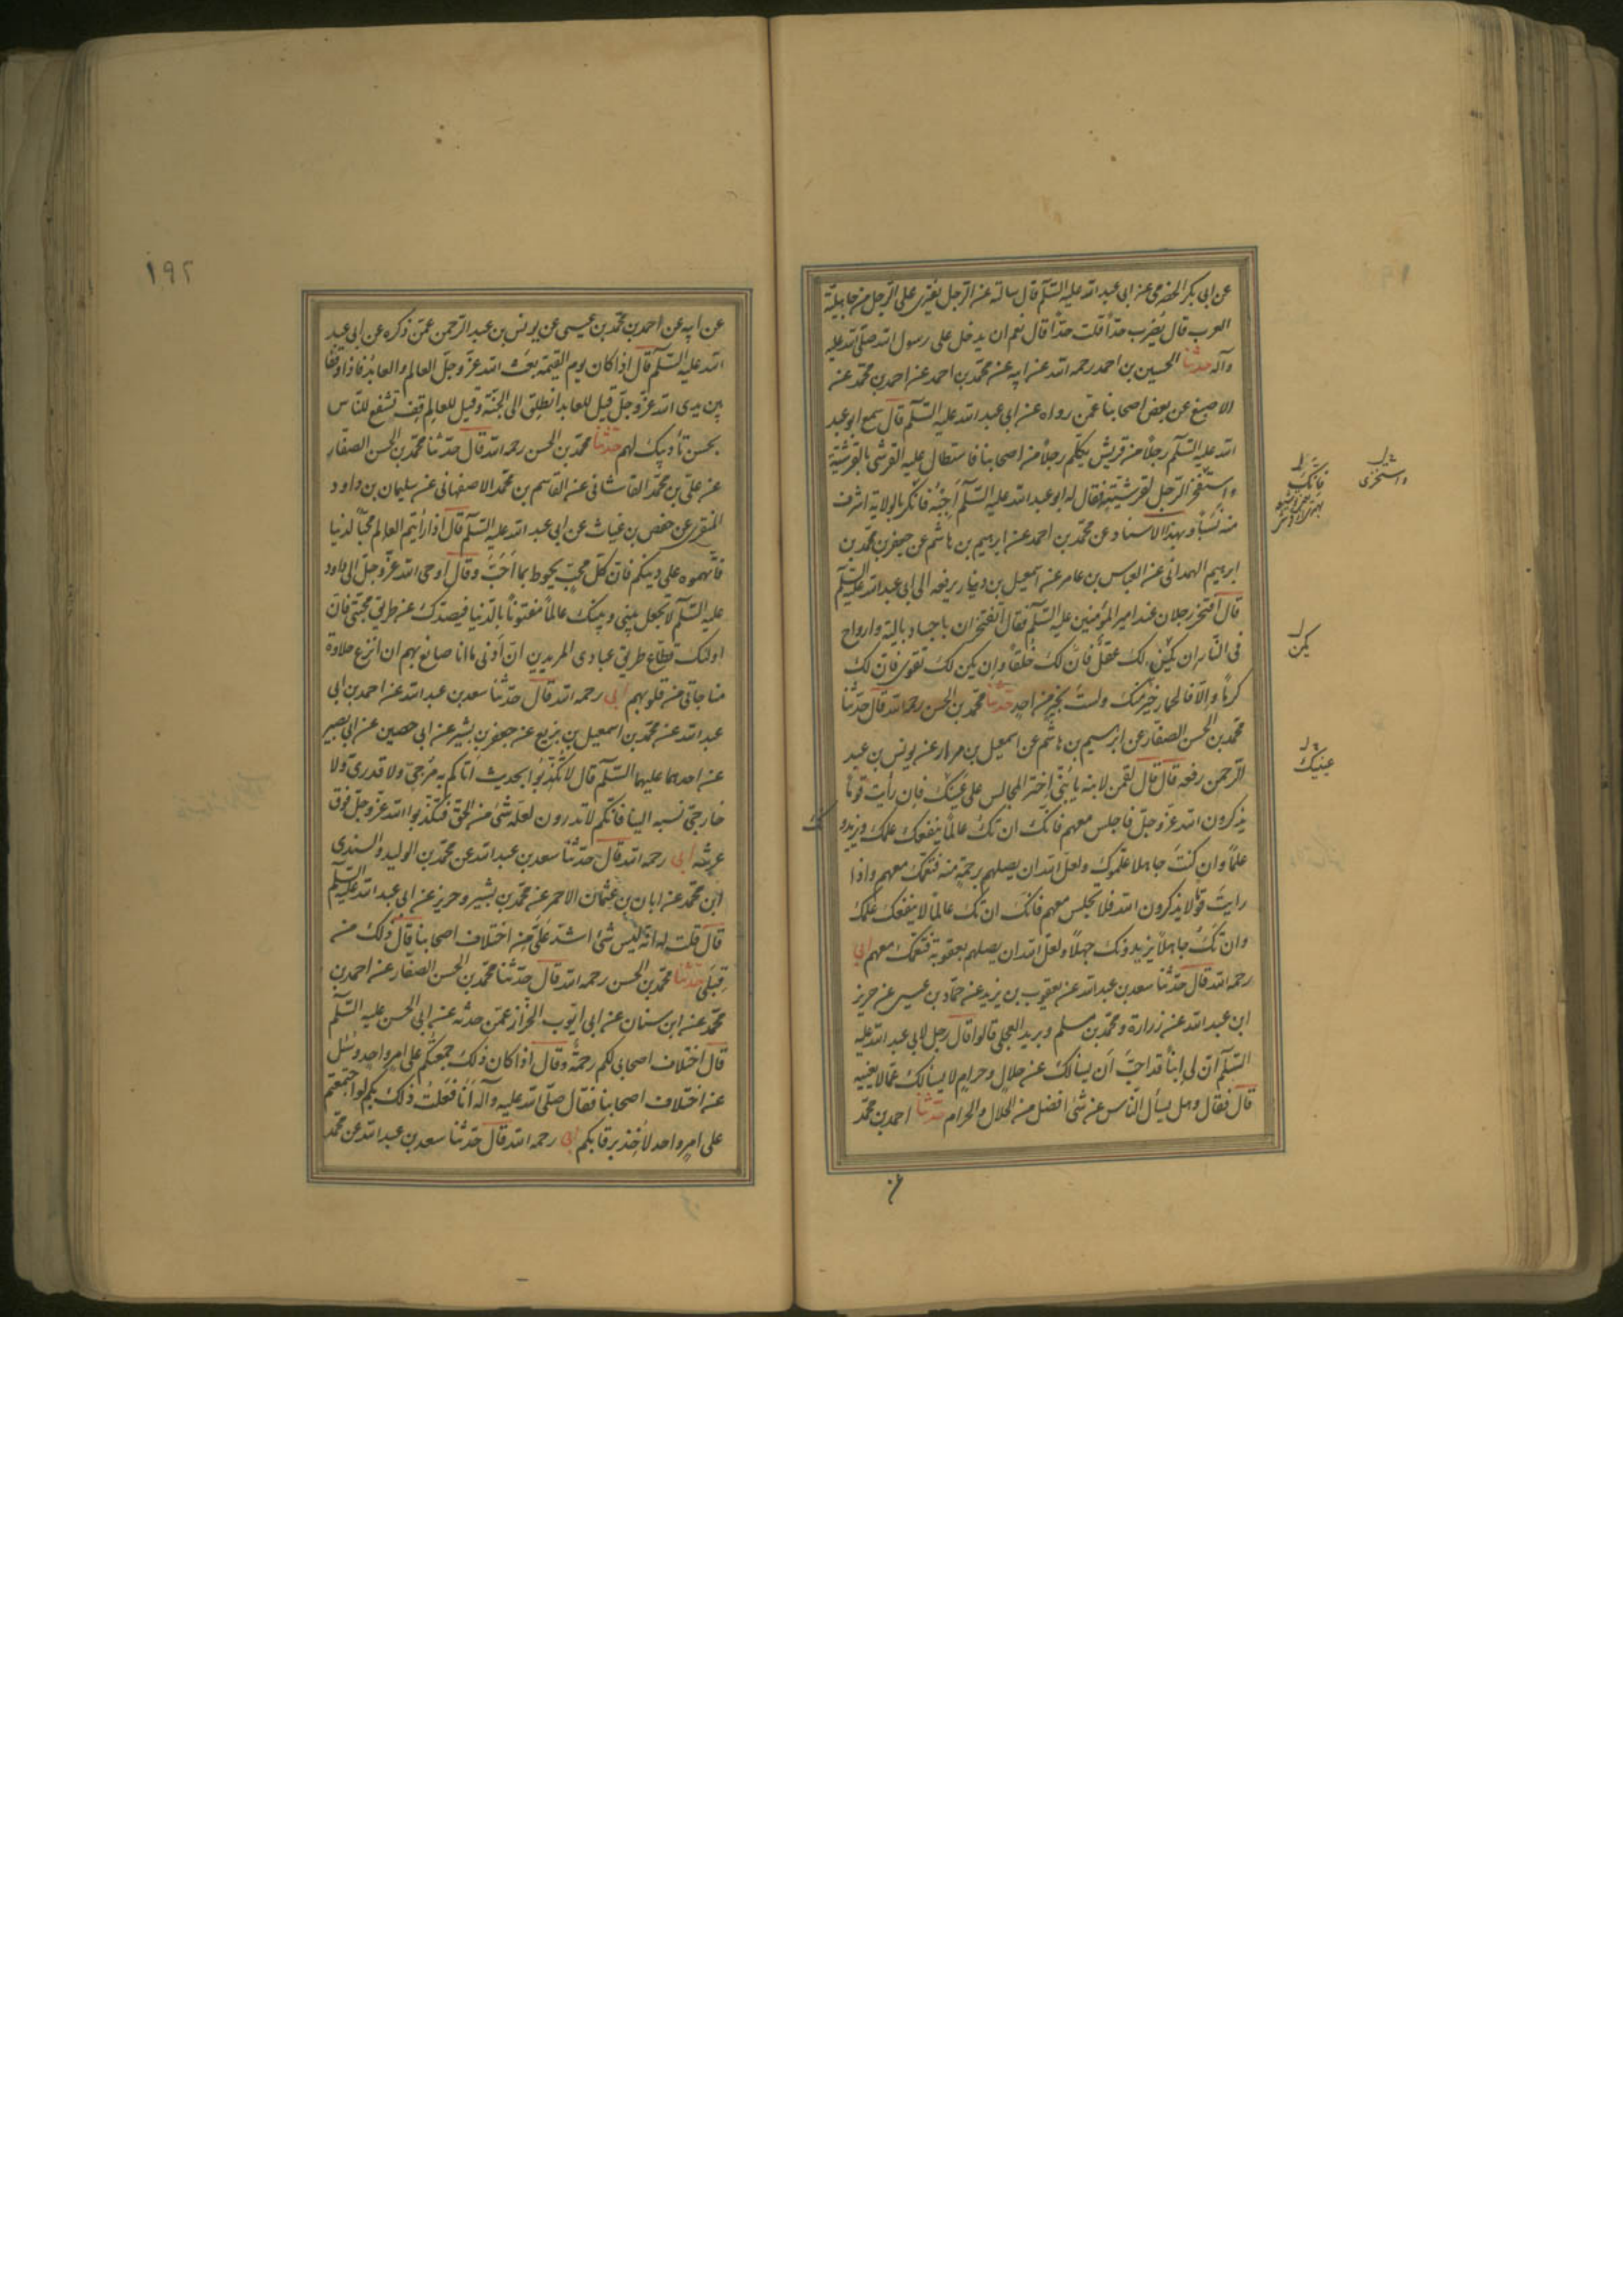 عن ابى بكر الحضرمى عن ابى عبد الله عليه السّلام قال سالته عن الرّجل يفترى على الرّجل من جاهليّة
العرب قال يُضرب حدّاً قلت حدّاً قال نعم ان يدخل على رسول الله صلّى الله عليه
وآله حدثنا الحسين بن احمد رحمه الله عن ابيه عن محمّد بن احمد عن احمد بن محمّد عن
الاصبغ عن بعض اصحابنا عمّن رواه عن ابى عبد الله عليه السّلام قال سمع ابو عبد
الله عليه السّلام رجلاً من قريش يكلّم رجلاً من اصحابنا فاستطال عليه القرشى بالقرشيّة
واستفخر الرّجل لقرشيّته فقال له ابو عبد الله عليه السّلام اَجِبْهُ فانّكَ بالولاية اشرف
منه نسباً وبهذا الاسناد عن محمّد بن احمد عن ابرهيم بن هاشم عن جعفر بن محمّد بن
ابرهيم الهمدانى عن العباس بن عامر عن اسمعيل بن دينار يرفعه الى ابى عبد الله عليه السّلام
قال افتخر رجلان عند امير المؤمنين عليه السّلام فقال اتفتخران باجساد بالية وارواح
فى النّار ان يكن لك عقل فانّ لك خلقاً وان يكن لك تقوى فانّ لك
كرماً والّا فالحمار خير منك ولست بخيرٍ من احدٍ حدّثنا محمّد بن الحسن رحمه الله قال حدّثنا
محمّد بن الحسن الصفّار عن ابرهيم بن هاشم عن اسمعيل بن مرار عن يونس بن عبد
الرّحمن رفعه قال قال لقمن لابنه يا بُنَىّ اختر المجالس على عينك فان رايت قوماً
يذكرون الله عزّ وجلّ فاجلس معهم فانّك ان تك عالماً ينفعك علمك ويزيدو
علماً وان كنتَ جاهلا علّموك ولعلّ الله ان يصلهم برحمةٍ منه فتعمّك معهم واذا
رايتَ قوماً لا يذكرون الله فلا تجلس معهم فانّك ان تك عالماً لا ينفعك علمك
وان تكُ جاهلاً يزيدونك جهلاً ولعلّ الله ان يصلهم بعقوبة فتعمّك معهم ابى
رحمه الله قال حدّثنا سعد بن عبد الله عن يعقوب بن يزيد عن حمّاد بن عيسى عن حريز
ابن عبد الله عن زرارة ومحمّد بن مسلم وبريد العجلى قالوا قال رجل لابى عبد الله عليه
السّلام انّ لى ابناً قد احبّ أن يسألك عن حلالٍ وحرامٍ لا يسألك عمّا لا يعنيه
قال فقال وهل يسأل النّاس عن شئ افضل من الحلال والحرام حدّثنا احمد بن محمّد
فانّك
واستخزى
يكن
عينيك
ك
عن
١٩٢
عن ابيه عن احمد بن محمّد بن عيسى عن يونس بن عبد الرّحمن عمّن ذكره عن ابى عبد
الله عليه السّلام قال اذا كان يوم القيمة بعث الله عزّ وجلّ العالم والعابد فاذا وقفا
بين يدى الله عزّ وجلّ قيل للعابد انطلق الى الجنّة وقيل للعالم قف تشفع للنّاس
بحسن تأديبك لهم حدّثنا محمّد بن الحسن رحمه الله قال حدّثنا محمّد بن الحسن الصفّار
عن علىّ بن محمّد القاشانى عن القاسم بن محمّد الاصفهانى عن سليمان بن داود
المنقرى عن حفص بن غياث عن ابى عبد الله عليه السّلام قال اذا رأيتم العالم محبّاً لدنيا
فاتّهموه على دينكم فانّ كلّ محبّ يحوط بما اَحَبَّ وقال اوحى الله عزّ وجلّ الى داود
عليه السّلام لا تجعل بينى وبينك عالماً مفتوناً بالدّنيا فيصدّك عن طريق محبّتى فانّ
اولئك قطّاع طريق عبادى المريدين انّ أدنى ما انا صانع بهم ان انزع حلاوة
مناجاتى من قلوبهم ابى رحمه الله قال حدّثنا سعد بن عبد الله عن احمد بن ابى
عبد الله عن محمّد بن اسمعيل بن بزيع عن جعفر بن بشير عن ابى حصين عن ابى بصير
عن احدهما عليهما السّلام قال لا تكذّبوا بحديث اتاكم به مُرجىّ ولا قدرىّ ولا
خارجىّ نسبه الينا فانّكم لا تدرون لعلّه شئ من الحقّ فتكذّبوا الله عزّ وجلّ فوق
عرشه ابى رحمه الله قال حدّثنا سعد بن عبد الله عن محمّد بن الوليد والسندى
ابن محمّد عن ابان بن عثمان الاحمر عن محمّد بن بشير وحريز عن ابى عبد الله عليه السّلام
قال قلت له انّه ليس شئ اشدّ عَلَىَّ من اختلاف اصحابنا قال ذلك من
قِبَلى حدّثنا محمّد بن الحسن رحمه الله قال حدّثنا محمّد بن الحسن الصفّار عن احمد بن
محمّد عن ابن سنان عن ابى ايّوب الخزّاز عمّن حدثه عن ابى الحسن عليه السّلام
قال اختلاف اصحابى لكم رحمةٌ وقال اذا كان ذلك جمعتكم على امرٍ واحدٍ وسُئل
عن اختلاف اصحابنا فقال صلّى الله عليه وآله أنا فعلتُ ذلك بكم لو اجتمعتم
على امرٍ واحد لأخذ برقابكم ابى رحمه الله قال حدّثنا سعد بن عبد الله عن محمّد